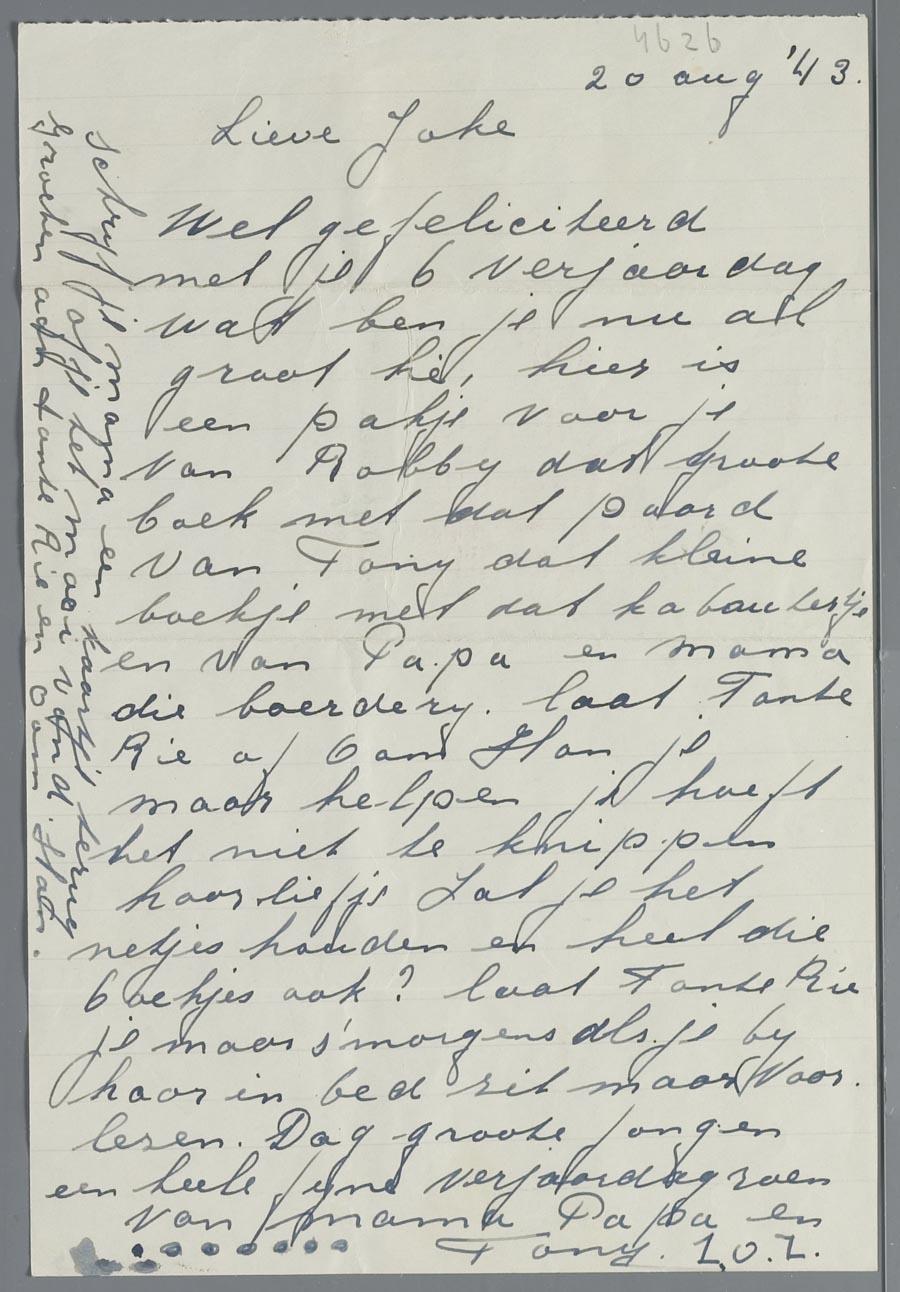 4626
20 aug '43.
Lieve Joke
Wel gefeliciteerd
met je 6 verjaardag
wat ben je nu al
groot hè, hier is
een pakje voor je
van Robby dat groote
boek met dat paard
van Tony dat kleine
boekje met dat kaboutertje
en van Papa en mama
die boerdery. laat Tante
Rie of Oom Han je
maar helpen je hoeft
het niet te knippen
hoor liefje Zal je het
netjes houden en heel die
boekjes ook? laat Tante Rie
je maar s'morgens als je by
haar in bed zit maar voor.
lezen. Dag groote jongen
een heele fyne verjaardagzoen
van mama Papa en
Tony. Z.O.Z.
Schryf je mama een kaartje terug
of je het mooi vond.
Groeten aan tante Rie en oom Han.